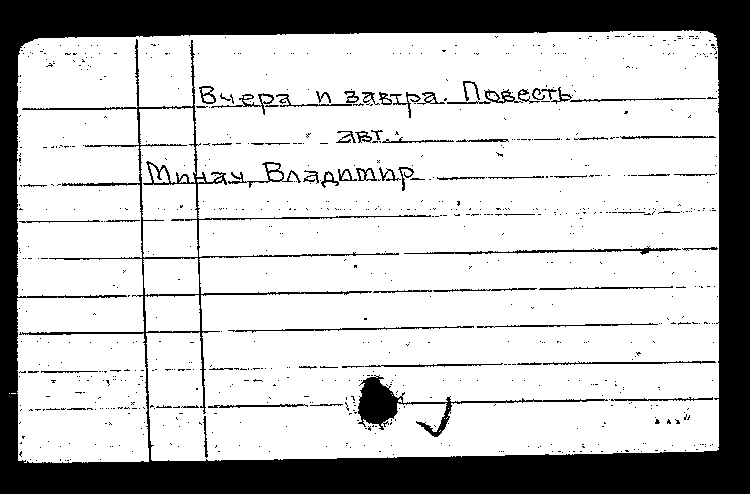 Вчера и завтра. Повесть
авт.:
Минач, Владимир